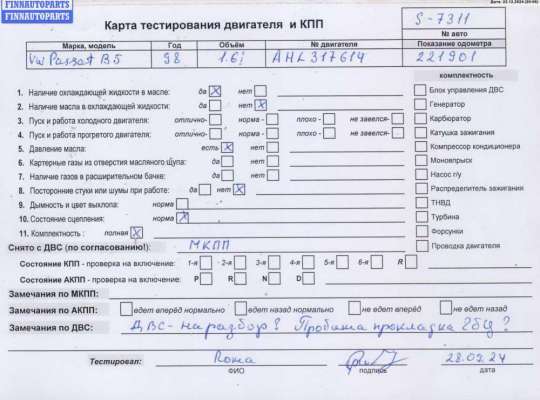 FINNAUTOPARTS
FINNAUTOPARTS
Карта тестирования двигателя и КПП
S-7311
№ авто
Марка, модель Год Объём № двигателя Показание одометра
VW Passat B5 98 1.6i AHL317614 221901
комплектность
1. Наличие охлаждающей жидкости в масле: да X нет
2. Наличие масла в охлаждающей жидкости: да нет X
3. Пуск и работа холодного двигателя: отлично- норма - плохо - не завелся-
4. Пуск и работа прогретого двигателя: отлично- норма - плохо - не завелся-
5. Давление масла: есть X нет
6. Картерные газы из отверстия масляного щупа: да нет
7. Наличие газов в расширительном бачке: да нет
8. Посторонние стуки или шумы при работе: да нет X
9. Дымность и цвет выхлопа: норма
10. Состояние сцепления: норма X
11. Комплектность : полная X
Блок управления ДВС
Генератор
Карбюратор
Катушка зажигания
Компрессор кондиционера
Моновпрыск
Насос г/у
Распределитель зажигания
ТНВД
Турбина
Форсунки
Проводка двигателя
Снято с ДВС (по согласованию!): МКПП
Состояние КПП - проверка на включение: 1-я 2-я 3-я 4-я 5-я 6-я R
Состояние АКПП - проверка на включение: P R N D
Замечания по МКПП:
Замечания по АКПП: едет вперёд нормально едет назад нормально не едет вперёд не едет назад
Замечания по ДВС: ДВС - на разбор! Пробита прокладка ГБЦ?
Тестировал: Рома 28.02.24
ФИО подпись дата